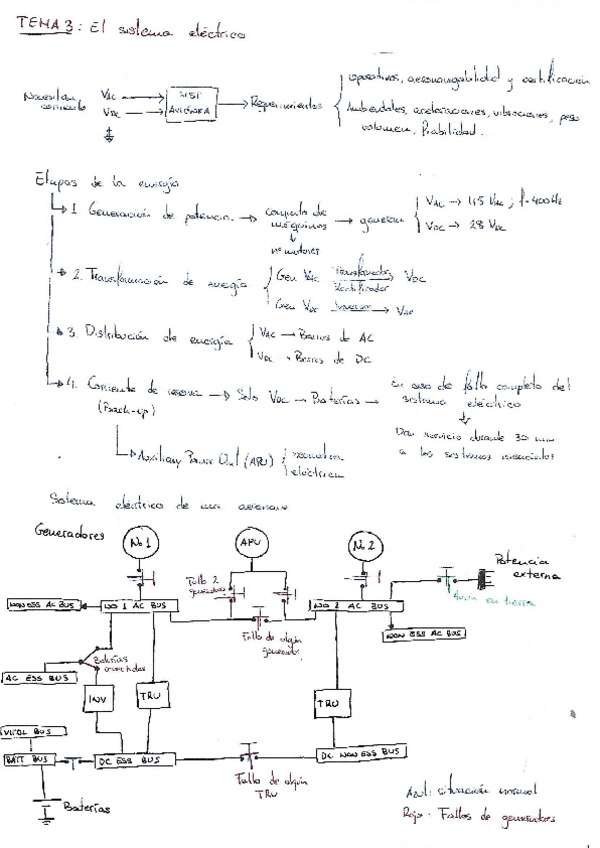 TEMA 3: El sistema eléctrico
Necesitan
VAC
VDC
AVIÓNICA
Requerimientos
operativos, aeronavegabilidad y certificación
Ambientales, aceleraciones, vibraciones, peso
volumen, fiabilidad...
Etapas de la energía
1. Generación de potencia → conjunto de máquinas → generan
VAC → 115 VAC ; f = 400 Hz
VDC → 28 VDC
2. Transformación de energía
Gen VAC Transformador Rectificador VDC
Gen VDC Inversor VAC
3. Distribución de energía
VAC → Barras de AC
VDC → Barras de DC
4. Corriente de reserva → Solo VDC → Baterías → En caso de fallo completo del
(Back-up)
sistema eléctrico
Dan servicio durante 30 min
a los sistemas esenciales
Auxiliary Power Unit (APU)
neumática
eléctrica
Sistema eléctrico de una aeronave
Generadores
No 1
APU
No 2
Potencia
externa
Fallo 2
generadores
Avión en tierra
NON ESS AC BUS
NO 1 AC BUS
NO 2 AC BUS
Fallo de algún
generador
NON ESS AC BUS
Baterías
conectadas
AC ESS BUS
INV
TRU
TRU
VITAL BUS
BATT BUS
DC ESS BUS
DC NON ESS BUS
Fallo de algún
TRU
Baterías
Azul: situación normal
Rojo: Fallos de generadores